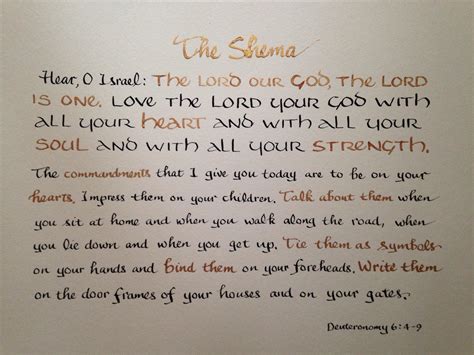 The Shema
Hear, O Israel: The LORD our GOD, The LORD
is one. Love the LORD your GOD with
all your heart and with all your
soul and with all your strength.
The commandments that I give you today are to be on your
hearts. Impress them on your children. Talk about them when
you sit at home and when you walk along the road, when
you lie down and when you get up. Tie them as symbols
on your hands and bind them on your foreheads. Write them
on the door frames of your houses and on your gates.
Deuteronomy 6:4-9